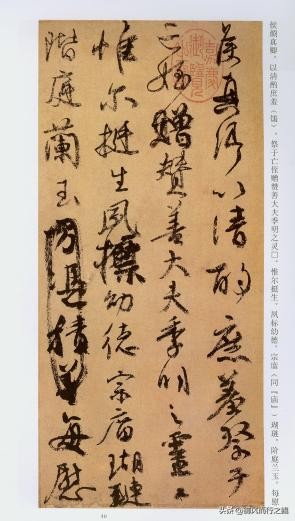 侯真卿以清酌庶羞祭于
亡姪赠赞善大夫季明之灵
惟尔挺生夙標幼德宗庿瑚琏
階庭蘭玉方凭積善每慰
侯颜真卿，以清酌庶羞（馐），祭于亡侄赠赞善大夫季明之灵□，惟尔挺生，夙标幼德，宗庿（同『庙』）瑚琏，阶庭兰玉，每慰
40
头条 @御风而行之鏡